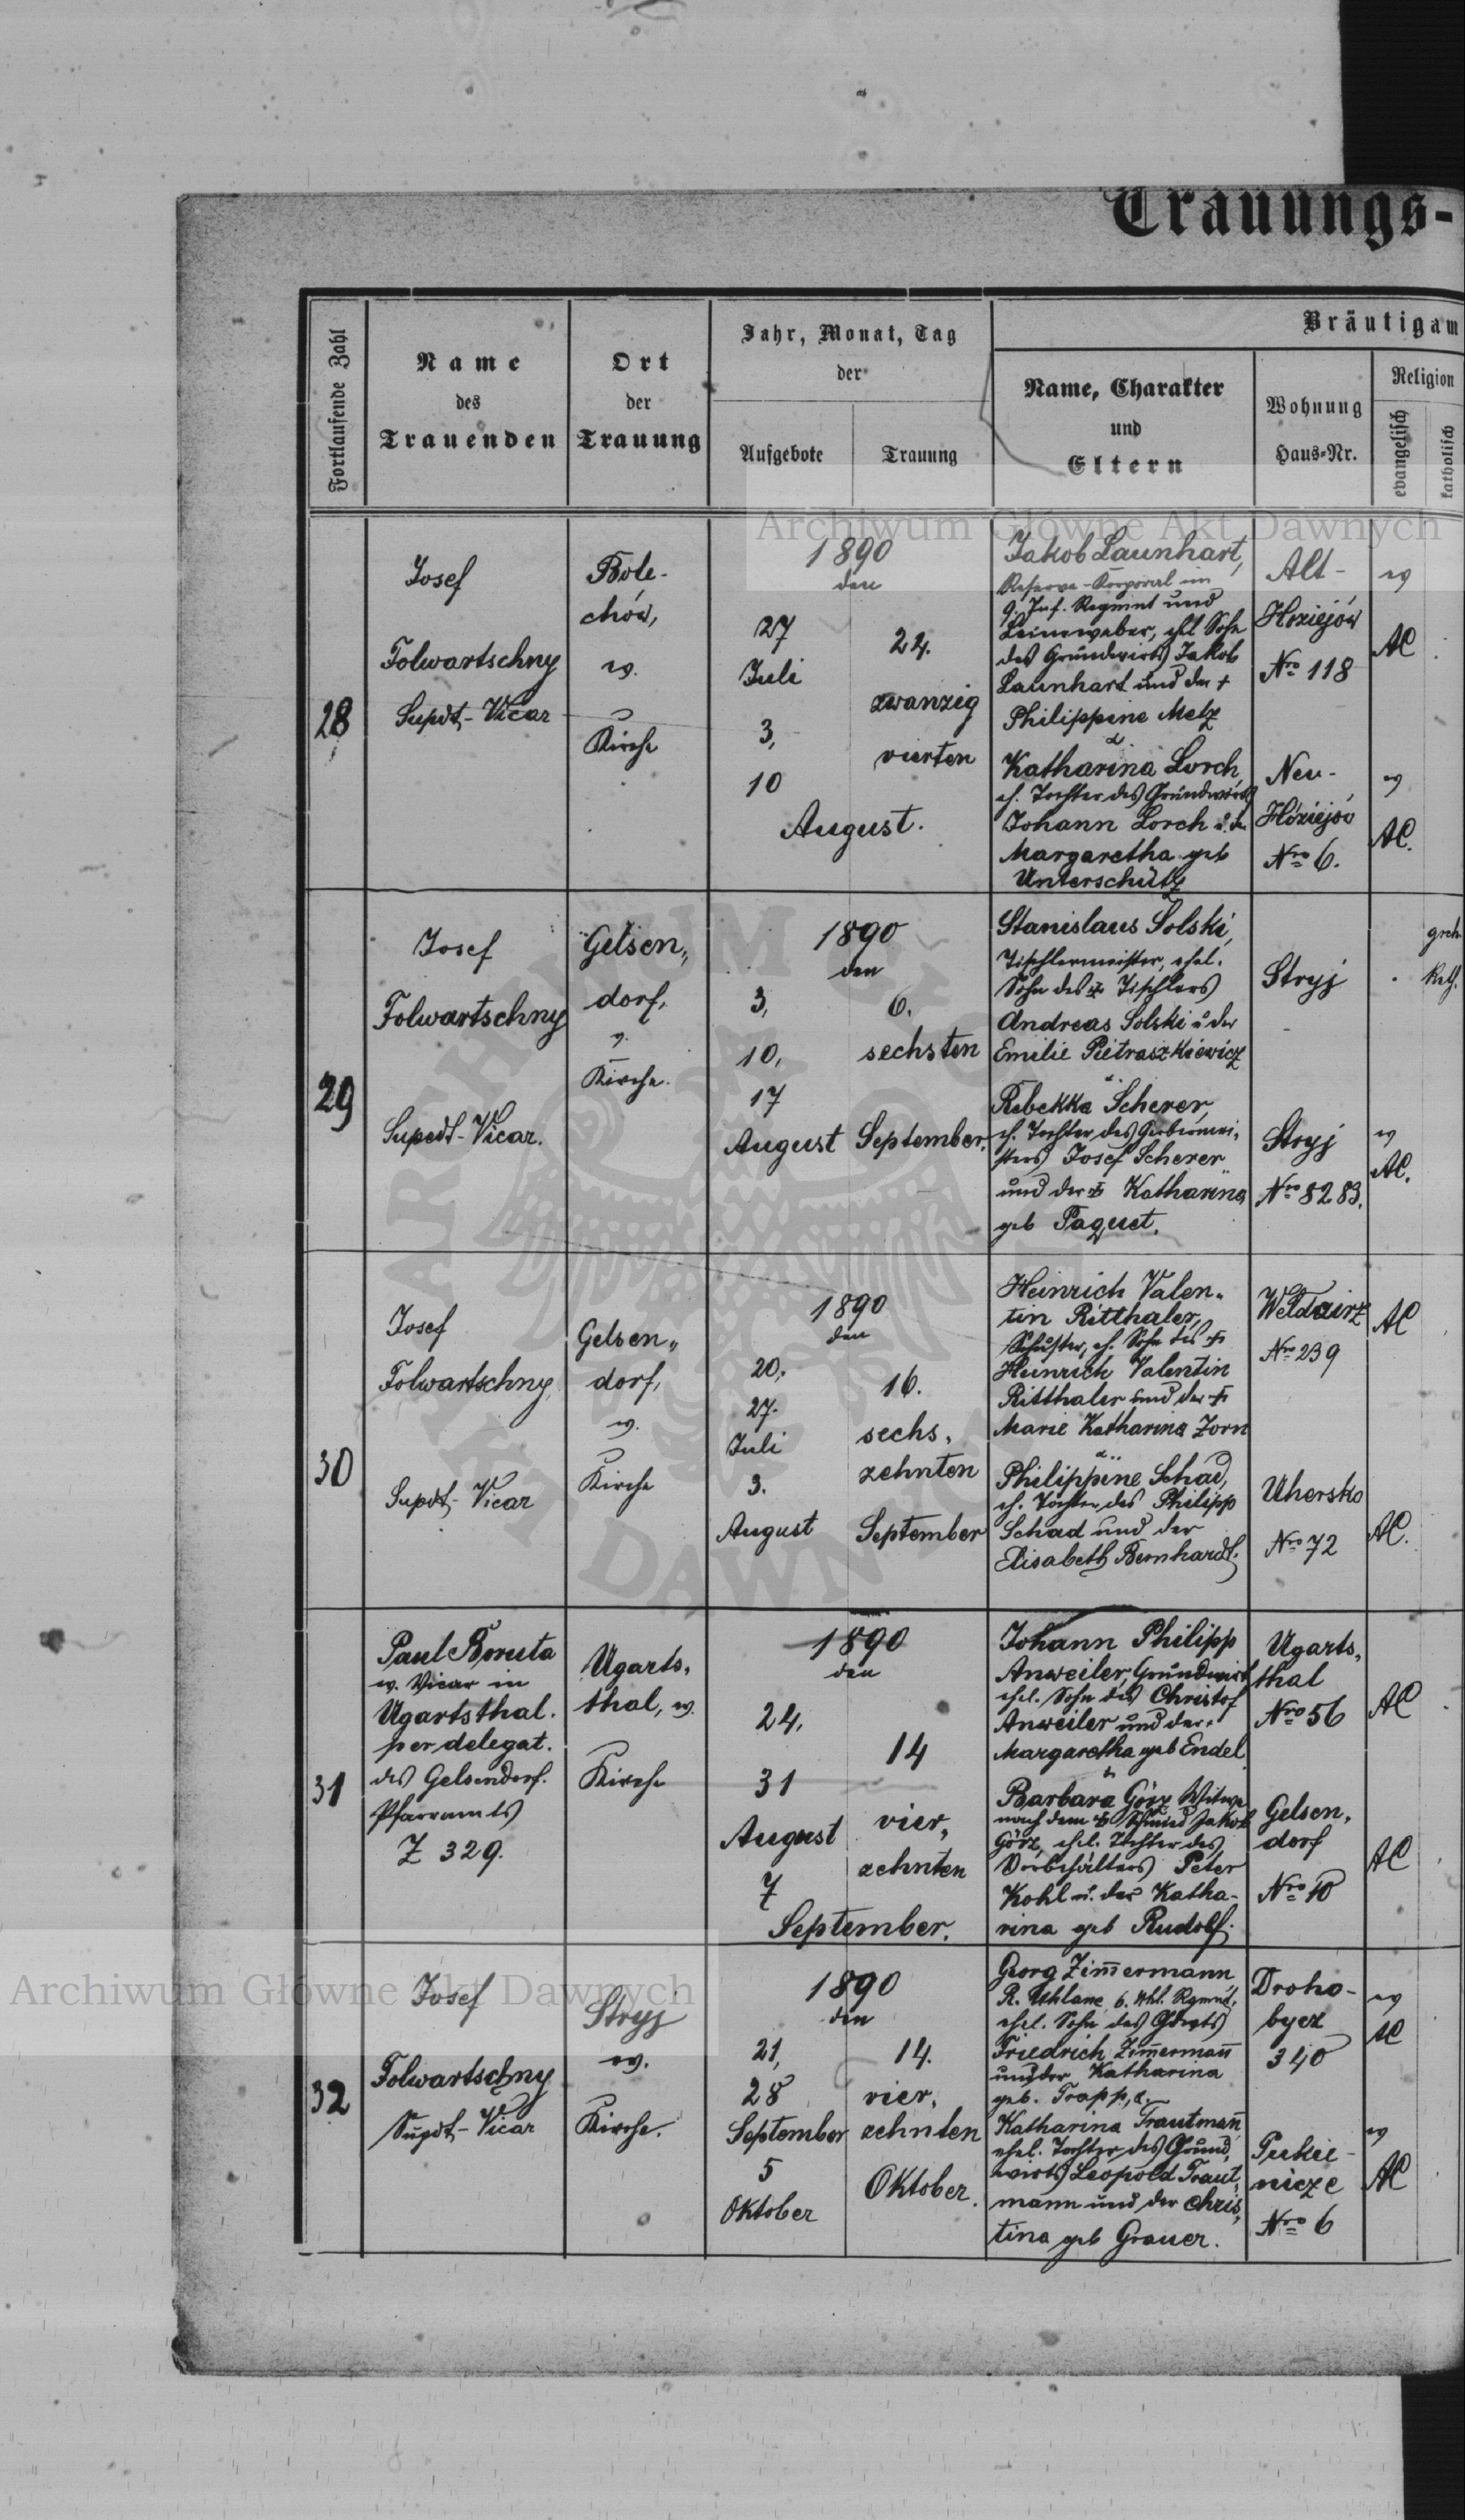 Trauungs-
Fortlaufende Zahl
Name
des
Trauenden
Ort
der
Trauung
Jahr, Monat, Tag
der
Aufgebote
Trauung
Bräutigam
Name, Charakter
und
Eltern
Wohnung
Haus-Nr.
Religion
evangelisch
katholisch
Archiwum Główne Akt Dawnych
28
Josef
Folwartschny
Supdt-Vicar
Bole-
chów,
ev.
Kirche
1890
den
27
Juli
3,
10
August.
24.
zwanzig
vierten
Jakob Launhart,
Reserve-Korporal im
9. Inf. Regment und
Leineweber, ehl Sohn
des Grundwirts Jakob
Launhart und der +
Philippine Metz
&
Katharina Lorch,
eh. Tochter des Grundwirts
Johann Lorch u. der
Margaretha geb
Unterschütz
Alt-
Hoziejów
Nro 118
Neu-
Hóziejów
Nro 6.
ev
AC
ev
AC.
29
Josef
Folwartschny
Supedt-Vicar.
Gelsen„
dorf,
ev.
Kirche.
1890
den
3,
10,
17
August
6.
sechsten
September.
Stanislaus Solski,
Tischlermeister, ehel.
Sohn des + Tischlers
Andreas Solski u der
Emilie Pietraszkiewicz
&
Rebekka Scherer,
eh. Tochter des Gerbermei-
sters Josef Scherer
und der + Katharina
geb Paquet.
Stryj
Stryj
Nro 8283.
grch
Kath.
ev
AC.
30
Josef
Folwartschny
Supdt-Vicar
Gelsen„
dorf,
ev.
Kirche
1890
den
20,
27.
Juli
3.
August
16.
sechs,
zehnten
September
Heinrich Valen„
tin Ritthaler,
Schuster, eh. Sohn des +
Heinrich Valentin
Ritthaler und der +
Marie Katharina Zorn
&
Philippine Schad,
eh. Tochter des Philipp
Schad und der
Elisabeth Bernhardt.
Weldzirz
Nro 239
Uhersko
Nro 72
AC
AC.
31
Paul Boruta
ev. Vicar in
Ugartsthal.
per delegat.
des Gelsendorf.
Pfarramts
Z 329.
Ugarts,
thal, ev.
Kirche
1890
den
24,
31
August
7
September.
14
vier„
zehnten
Johann Philipp
Anweiler, Grundwirt
ehel. Sohn des Christof
Anweiler und der
Margaretha geb Endel
&
Barbara Görz Witwe
nach dem + Schmied Jakob
Görz, ehel. Tochter des
Vorbehälters Peter
Kohl u. der Katha-
rina geb Rudolf.
Ugarts,
thal
Nro 56
Gelsen,
dorf
Nro 10
AC
AC
32
Josef
Folwartschny
Supdt-Vicar
Stryj
ev.
Kirche.
1890
den
21,
28
September
5
Oktober
14.
vier„
zehnten
Oktober.
Georg Zimmermann,
R. Uhlane 6. Uhl. Rgmnt.
ehel. Sohn des Gdwrts
Friedrich Zimmermann
und der Katharina
geb. Trapp, &
Katharina Trautmann
ehel. Tochter des Grund,
wirts Leopold Traut,
mann und der Chris,
tina geb Grauer.
Droho-
bycz
340
Pukie-
nicze
Nro 6
ev
AC
ev
AC
Archiwum Główne Akt Dawnych
ARCHIWUM GŁÓWNE AKT DAWNYCH